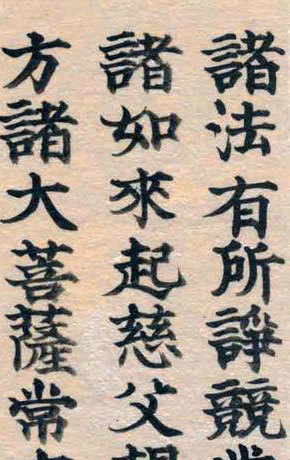 諸法有所諍競
諸如來起慈父想
方諸大菩薩常